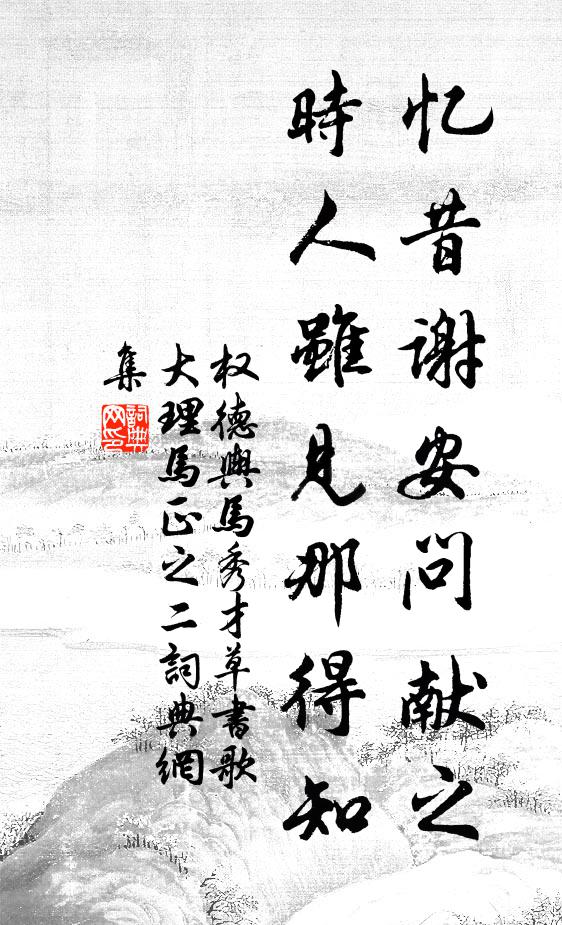 忆昔谢安问献之
時人雖見那得知
权德輿馬秀才草書歌
大理馬正之二詞典網
集
詞典网印